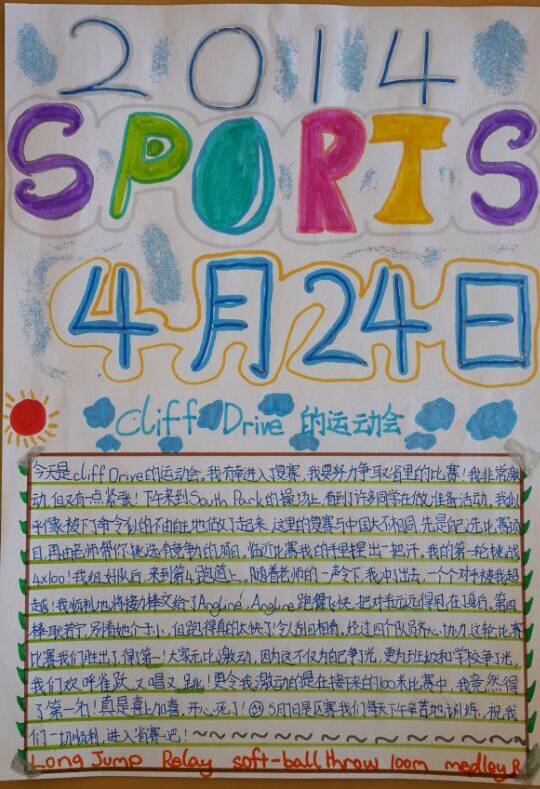 2014
SPORTS
4月24日
Cliff Drive 的运动会
今天是cliff Drive的运动会。我有幸进入复赛,我要努力争取省里的比赛!我非常激
动,但又有点紧张!下午来到South Park的操场上,看到了许多同学在做准备活动。我似
乎像被下了命令似的不由自主地做了起来。这里的复赛与中国大不相同,先是自己选比赛项
目,再由老师帮你挑选有竞争力的项目。临近比赛我的手里捏出一把汗。我的第一轮挑战
4x100!我组好队后,来到第4跑道上。随着老师的一声令下,我冲了出去,一个个对手被我超
越!我顺利地将接力棒交给了Angline!Angline跑得飞快,把对手远远得甩在了身后。第四
棒 别看她个子小,但跑得真的太快了!令人刮目相看。经过四个队员齐心协力,这轮比赛
比赛我们胜出了,得了第一!大家无比激动,因为这不仅为自己争光,更为班级和学校争了光,
我们欢呼雀跃,又唱又跳!更令我激动的是在接下来的100米比赛中,我竟然得
了第一名!真是喜上加喜,开心死了!5月7日是区赛我们每天下午辛苦地训练,祝我
们一切顺利,进入省赛吧!~~~~~~~~~~~~~~
Long Jump Relay soft-ball throw 100m medley R